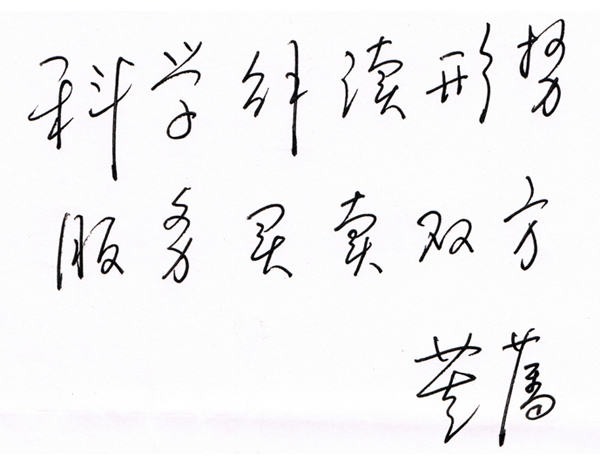 科学解读形势
服务买卖双方